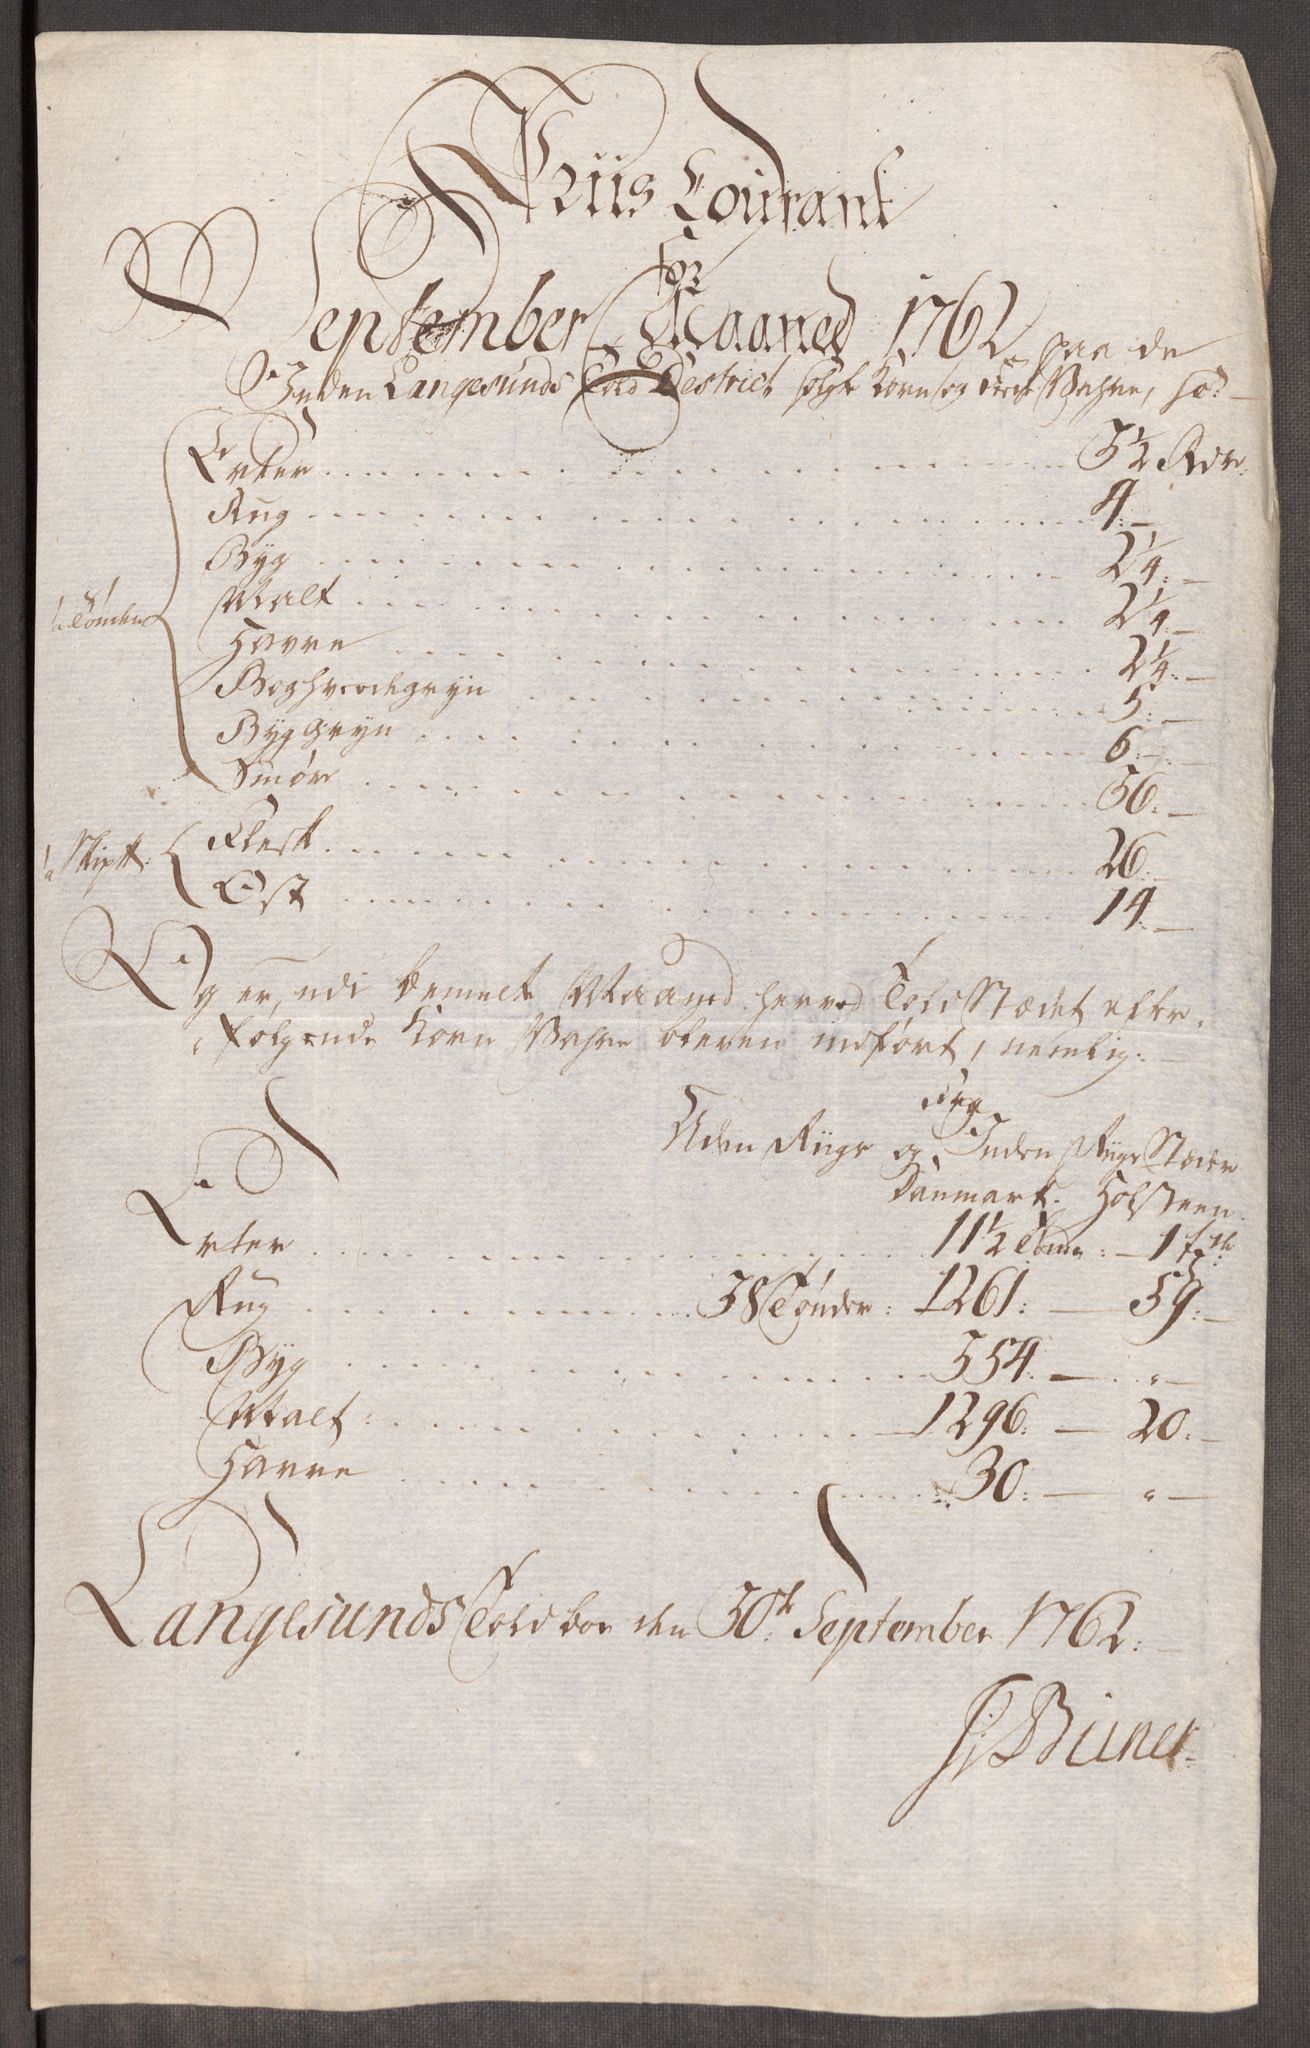 Priis Courant
for
September Maaned 1762 paa de
Inden Langesunds Told District solgte Korn og Fede Vahre, so:
Erter 5½ Rdr:
Rug 4:
Byg 2¼:
Malt 2¼:
à Tønden
Havre 2¼:
Boghvedegryn 5:
Byg Gryn 6:
Smør 36:
à Skip℔: Flesk 26:
Ost 14:
Og er, udi bemelte Maaned herved ToldStædet efter-
følgende Korn Vahre bleven indført, nemlig:
Fra
Uden Riigs og Inden Riigs Stæder
Danmark. Holsteen.
Erter 11½ Tønde: 1
Rug 38 Tønder: 1261: 59:
Byg 554: "
Malt: 1296: 20:
Havre 30: "
Langesunds Toldboe den 30te September 1762: